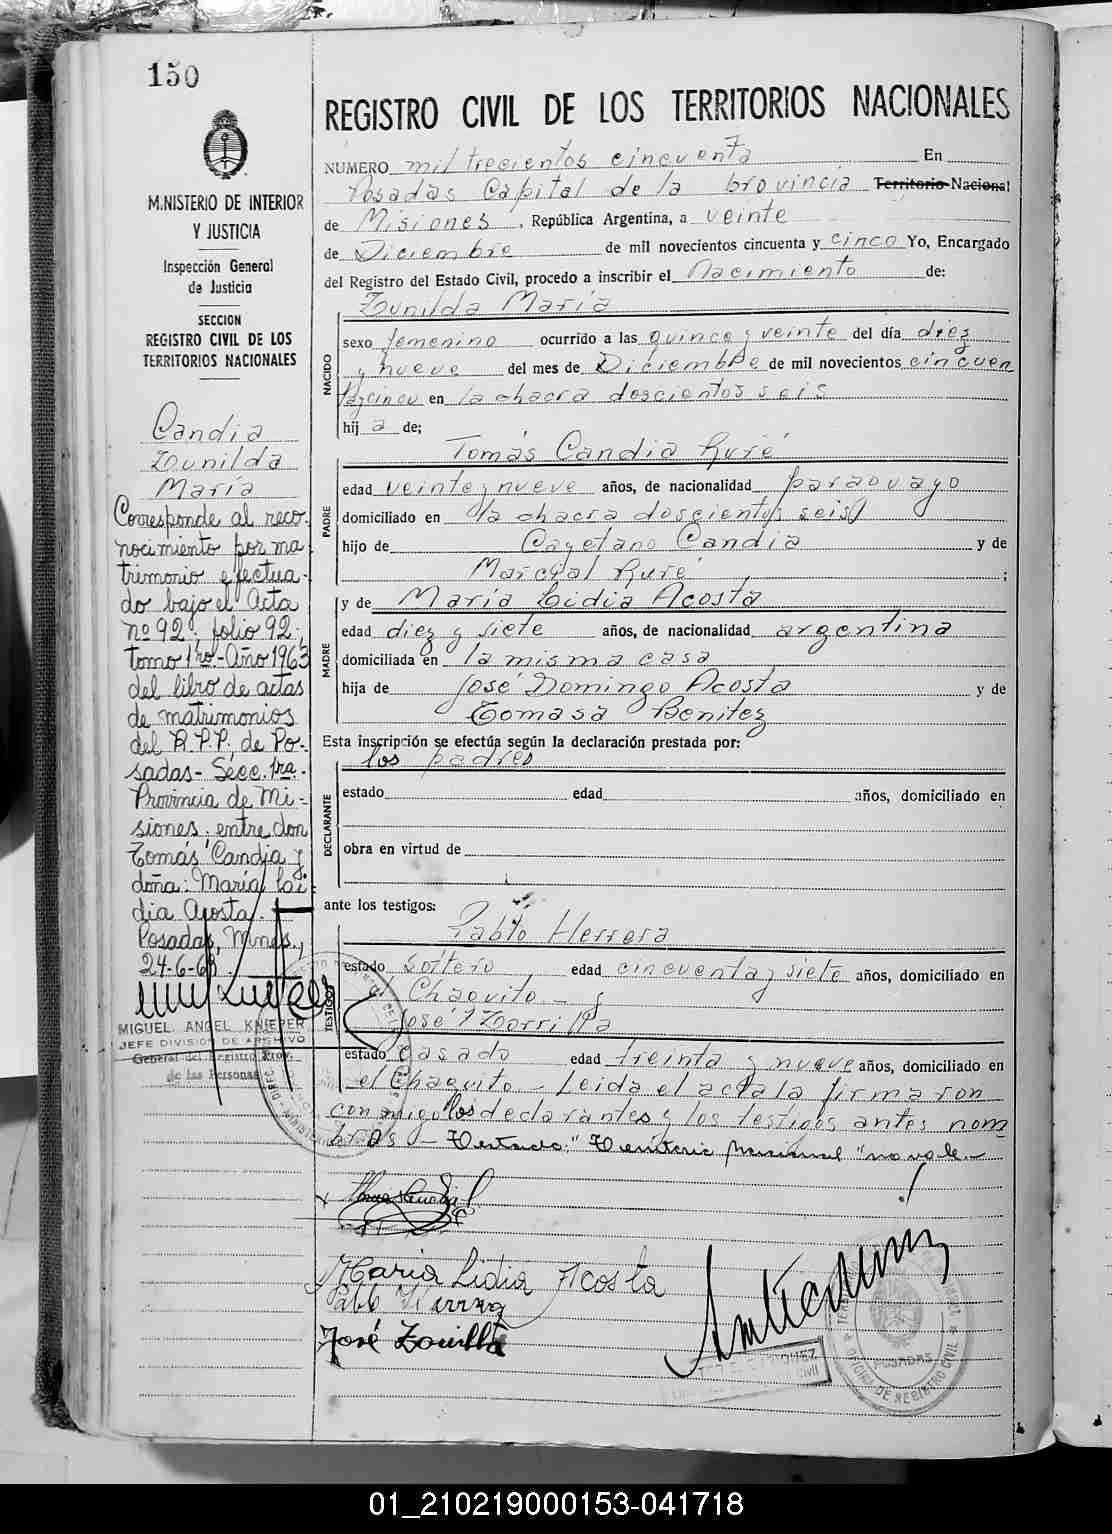 150
MINISTERIO DE INTERIOR
Y JUSTICIA
Inspección General
de Justicia
SECCION
REGISTRO CIVIL DE LOS
TERRITORIOS NACIONALES
Candia
Zunilda
María
Corresponde al reco-
nocimiento por ma
trimonio efectua-
do bajo el Acta
nº 92; folio 92;
tomo 1ro.- Año 1963
del libro de actas
de matrimonios
del R.P.P. de Po-
sadas- Secc. 1ra.-
Provincia de Mi-
siones. entre don
Tomás Candia y
doña: María Li-
dia Acosta.
Posadas, Mnes.,
24-6-68.
MIGUEL ANGEL KNIEPER
JEFE DIVISION DE ARCHIVO
General del Registro Prov.
de las Personas
REGISTRO CIVIL DE LOS TERRITORIOS NACIONALES
NUMERO mil trecientos cincuenta En
Posadas Capital de la provincia Territorio Nacional
de Misiones, República Argentina, a veinte
de Diciembre de mil novecientos cincuenta y cinco Yo, Encargado
del Registro del Estado Civil, procedo a inscribir el Nacimiento de:
Zunilda María
NACIDO
sexo femenino ocurrido a las quince y veinte del día diez
y nueve del mes de Diciembre de mil novecientos cincuen
taycinco en la chacra doscientos seis
hij a de;
Tomás Candia Ruré
PADRE
edad veinte y nueve años, de nacionalidad paraguayo
domiciliado en la chacra doscientos seis
hijo de Cayetano Candia y de
Marcial Ruré;
y de María Lidia Acosta
MADRE
edad diez y siete años, de nacionalidad argentina
domiciliada en la misma casa
hija de José Domingo Acosta y de
Tomasa Benitez
Esta inscripción se efectúa según la declaración prestada por:
los padres
DECLARANTE
estado edad años, domiciliado en
obra en virtud de
ante los testigos:
Pablo Herrera
TESTIGOS
estado soltero edad cincuenta y siete años, domiciliado en
Chaquito - y
José Zorrilla
estado casado edad treinta y nueve años, domiciliado en
el Chaquito - Leida el acta la firmaron
conmigo los declarantes y los testigos antes nom
brados - Testado: "Territorio Nacional" no vale.-
María Lidia Acosta
Pablo Herrera
José Zorrilla
POSADAS
OFICINA DE REGISTRO CIVIL
01_210219000153-041718